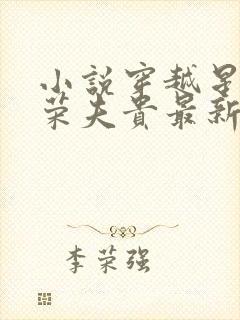 小說穿越星
榮夫貴最新
李荣强